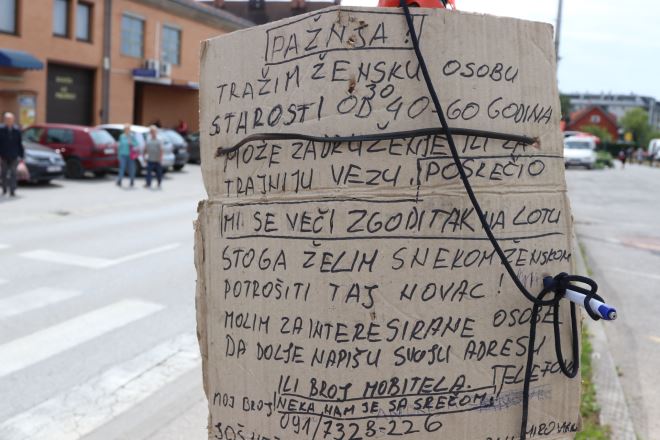 PAŽNJA!
TRAŽIM ŽENSKU OSOBU
30
STAROSTI OD 40-60 GODINA
MOŽE ZADRUŽENJE ILI ZA
TRAJNIJU VEZU! POSLEČIO
MI SE VEČI ZGODITAK NA LOTU
STOGA ŽELIM S NEKOM ŽENSKOM
POTROŠITI TAJ NOVAC!
MOLIM ZAINTERESIRANE OSOBE
DA DOLJE NAPIŠU SVOJU ADRESU
ILI BROJ MOBITELA. TELEFON
MOJ BROJ NEKA NAM JE SA SREČOM!
091/7328-226
JOŠ